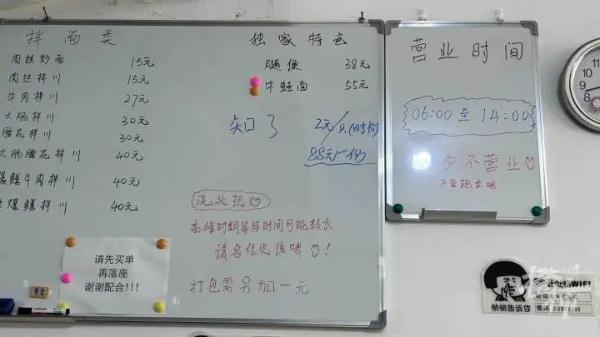 拌面类
肉丝炒面 15元
肉丝拌川 15元
牛肉拌川 27元
大肠拌川 30元
腰花拌川 30元
大肠腰花拌川 40元
爆鳝牛肉拌川 40元
爆鳝拌川 40元
独家特色
随便 38元
牛蛙面 55元
知了 2元/只(时价)
88元一份
浇头现炒
高峰时期等待时间可能较长
请各位见谅哦!
打包需另加一元
请先买单
再落座
谢谢配合!!!
营业时间
06:00至14:00
夕不营业
不要跑空哦